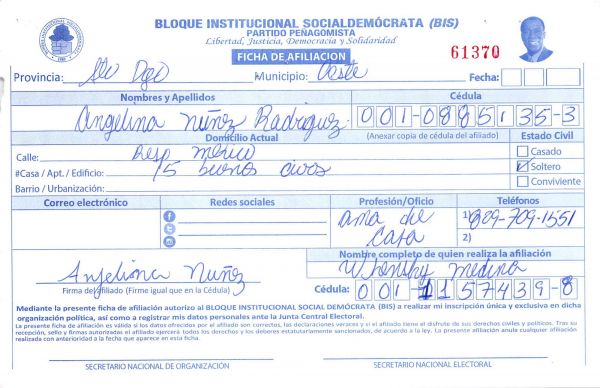 BLOQUE INSTITUCIONAL SOCIALDEMÓCRATA (BIS)
PARTIDO PEÑAGOMISTA
Libertad, Justicia, Democracia y Solidaridad
FICHA DE AFILIACION
61370
Provincia: Sto Dgo Municipio: Oeste Fecha:
Nombres y Apellidos Cédula
Angelina Nuñez Rodriguez 001-0885135-3
Domicilio Actual (Anexar copia de cédula del afiliado) Estado Civil
Calle: Resp mexico Casado
#Casa / Apt. / Edificio: 15 buenos aires Soltero
Barrio / Urbanización: Conviviente
Correo electrónico Redes sociales Profesión/Oficio Teléfonos
ama de casa
1) 829-709-1551
2)
Nombre completo de quien realiza la afiliación
Medina
Anjelina Nuñez
Firma de/afiliado (Firme igual que en la Cédula) Cédula: 001-1157439-8
Mediante la presente ficha de afiliación autorizo al BLOQUE INSTITUCIONAL SOCIAL DEMÓCRATA (BIS) a realizar mi inscripción única y exclusiva en dicha
organización política, así como a registrar mis datos personales ante la Junta Central Electoral.
La presente ficha de afiliación es válida si los datos ofrecidos por el afiliado son correctos, las declaraciones veraces y si el afiliado tiene el disfrute de sus derechos civiles y políticos. Tras su
recepción, sello y firmas autorizadas el afiliado ejercerá todos los derechos y los deberes estatutariamente sancionados, de acuerdo a la ley. La presente afiliación anula cualquier afiliación
realizada con anterioridad a la fecha que aparece en esta ficha.
SECRETARIO NACIONAL DE ORGANIZACIÓN SECRETARIO NACIONAL ELECTORAL